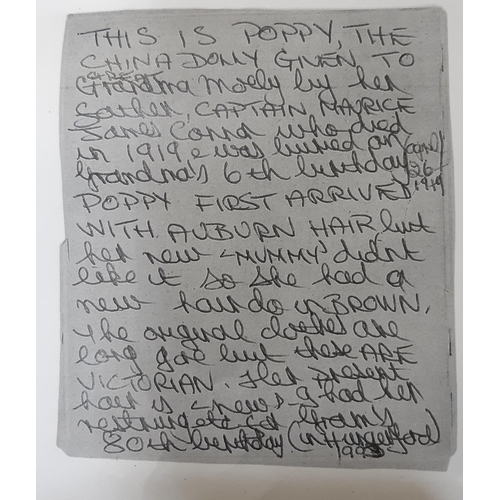 THIS IS POPPY, THE
CHINA DOLLY GIVEN TO
GREAT
Grandma Molly by her
father, CAPTAIN MAURICE
James who died
in 1919 & was buried on
Grandma's 6th birthday April
26
1919
POPPY FIRST ARRIVED
WITH AUBURN HAIR but
her new "MUMMY" didn't
like it so she had a
new hair do in BROWN.
The original clothes are
long gone but these ARE
VICTORIAN. Her present
hair is "new" & had her
restrung for Gran's
80th birthday (in Hungerford)